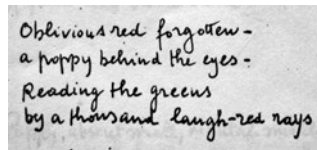 Oblivious red forgotten -
a poppy behind the eyes -
Reading the greens
by a thousand laugh-red rays